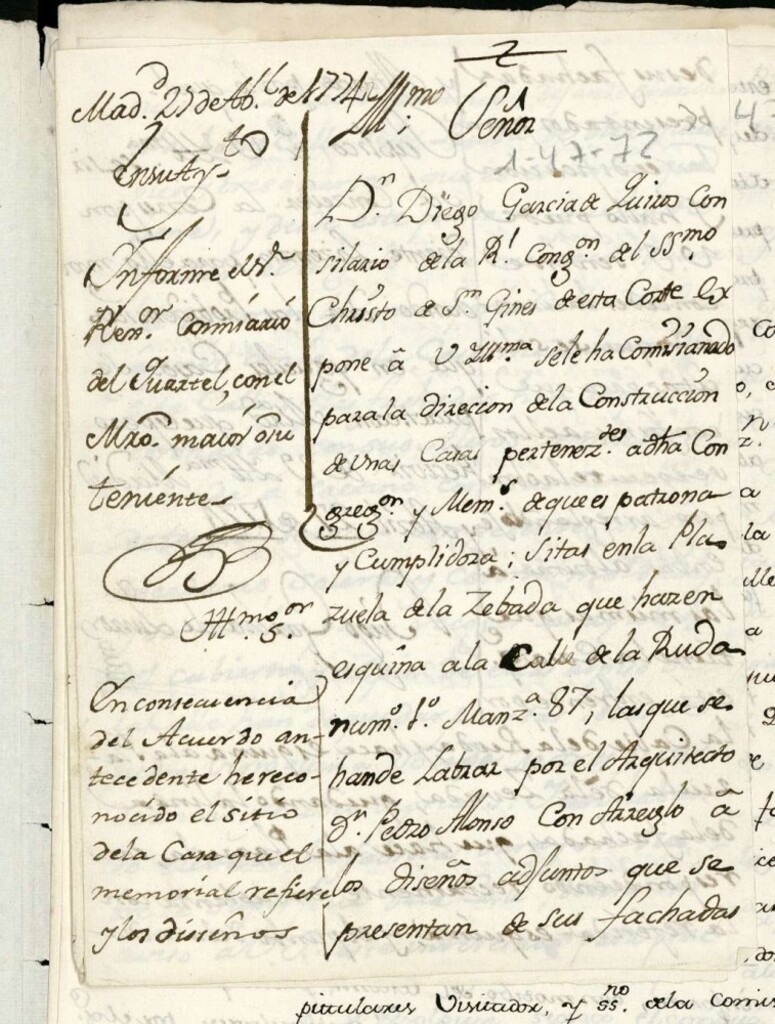 2
Mad.d 27 de Ab.l de 1774
En su Ay.to
Informe el S.r
Rex.or Comisario
del Quartel, con el
Mro. maior ó su
teniénte
Ill.mo S.or
En consecuencia
del Acuerdo an-
tecedente he reco-
nocido el sitio
de la Casa que el
memorial refiere
y los diseños
Ill.mo Señor
1-47-72
D.n Diego Garcia de Quiros Con
siliario de la R.l Cong.on del SS.mo
Christo de S.n Gines de esta Corte Ex
pone â V Yll.ma se le ha Comisionado
para la direccion de la Construcción
de unas Casas pertenez.tes a dha Con
greg.on y Mem.s de que es patrona
y Cumplidora; Sitas en la Pla
zuela de la Zebada que hazen
esquina a la Calle de la Ruda
num.o 1.o Manz.a 87, las que se
han de Labrar por el Arquitecto
d.n Pedro Alonso Con Arreglo â
los diseños adjuntos que se
presentan de sus fachadas
pitulares Visitador, y SS.no de la Comis